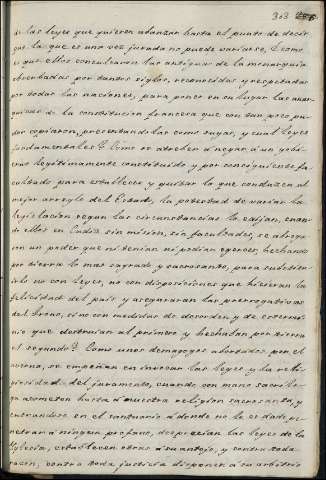 303
de las leyes que quieren abanzar hasta el punto de decir
que la que es una vez jurada no puede variarse? Como
es que ellos conculcaron las antiguas de la monarquia
observadas por tantos siglos, reconocidas y respetadas
por todas las naciones, para poner en su lugar las anar
quicas de la constitucion francesa que con tan poco pu
dor copiaron, presentandolas como suyas, y cual leyes
fundamentales? Como se atreben a negar a un gobi
erno legitimamente constituido y por consiguiente fa
cultado para establecer y quitar lo que conduzca al
mejor arreglo del Estado, la potestad de variar la
legislacion segun las circunstancias lo exijan, cuan
do ellos en Cadiz sin mision, sin facultades, se abroga
ron un poder que ni tenian ni podian egercer, hechando
por tierra lo mas sagrado y sacrosanto, para substitu
irlo no con leyes, no con disposiciones que hicieran la
felicidad del pais y aseguraran las prerrogativas
del trono, sino con medidas de desorden y de extermi
nio que destruian al primero y hechaban por tierra
el segundo? Como unos demagogos abortados por el
averno, se empeñan en invocar las leyes y la reli
giosidad del juramento, cuando con mano sacrile
ga acometen hasta a nuestra religion sacrosanta, y
entrandose en el santuario a donde no le es dado pe
netrar a ningun profano, desprecian las leyes de la
Yglesia, establecen otras a su antojo, y contra toda
razon, contra toda justicia disponen a su arbitrio